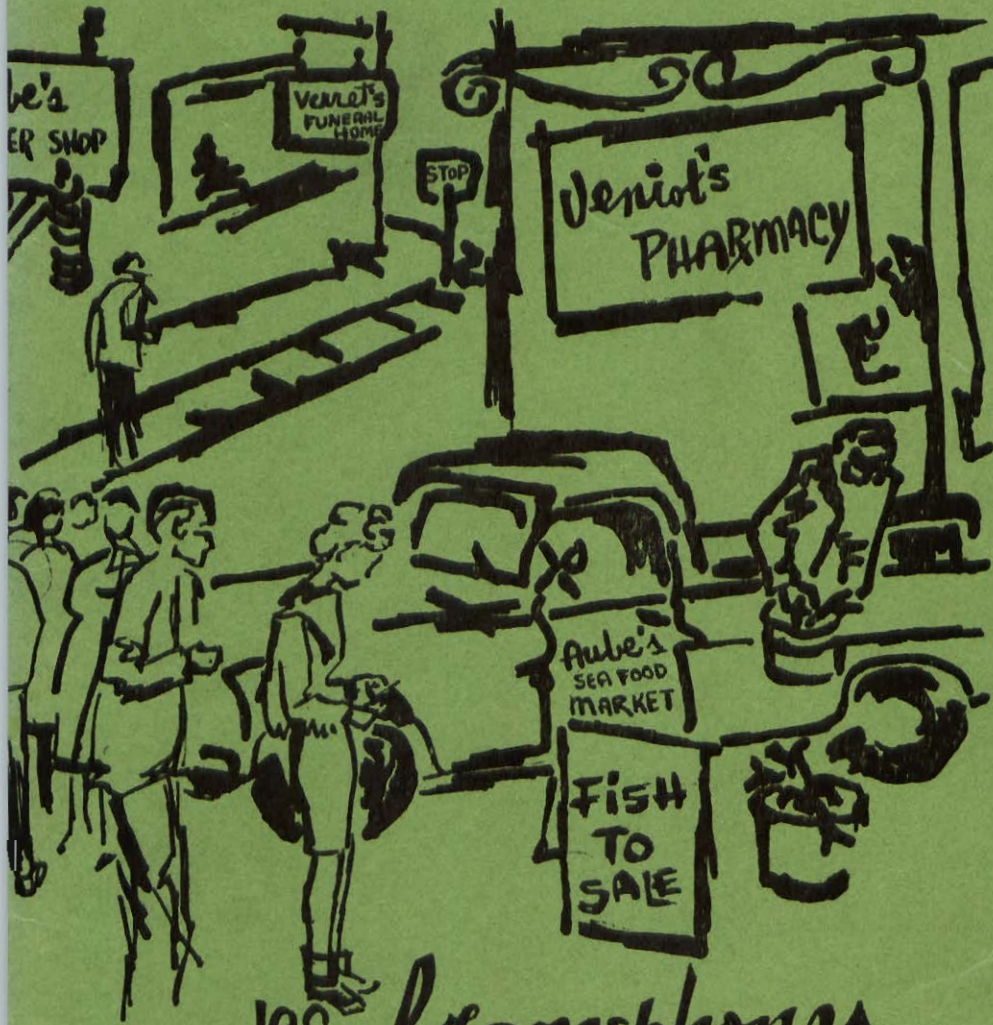 be's
ER SHOP
Verret's
FUNERAL
HOME
STOP
Veniot's
PHARMACY
E
Aube's
SEA FOOD
MARKET
FISH
TO
SALE
les francophones